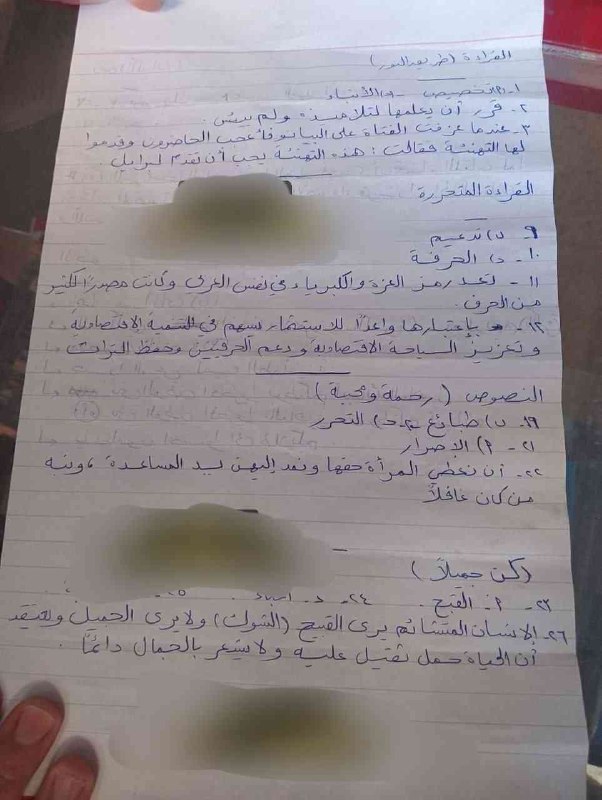 القراءة (طريق النور)
١- التخصيص - د) الأنباء
٢- قرر أن يعلمها لتلامذة ولم ييئس.
٣- عندما عزفت الفتاة على البيانو فأعجب الحاضرون وقدموا
لها التهنئة فقالت: هذه التهنئة يجب أن تقدم لبرايل.
القراءة المتحررة
٩- د) تدعيم
١٠- د) الحرفة
١١- تعد رمز العزة والكبرياء في نفس العربي وكانت مصدرًا لكثير
من الحرف.
١٢- بإعتبارها واعدًا للاستثمار تسهم في التنمية الاقتصادية
وتعزيز السياحة الاقتصادية ودعم الحرفيين وحفظ التراث
النصوص (رحمة ومحبة)
١٩- د) طبائع ٢٠- د) التحرر
٢١- ٢) الاصرار
٢٢- أن نعطي المرأة حقها ونمد إليهن يد المساعدة، وننبه
من كان غافلًا
(كن جميلًا)
٢٣- ٢- القبح. ٢٤- د-
٢٦- الإنسان المتشائم يرى القبيح (الشوك) ولا يرى الجميل ويعتقد
أن الحياة حمل ثقيل عليه ولا يشعر بالجمال دائمًا.